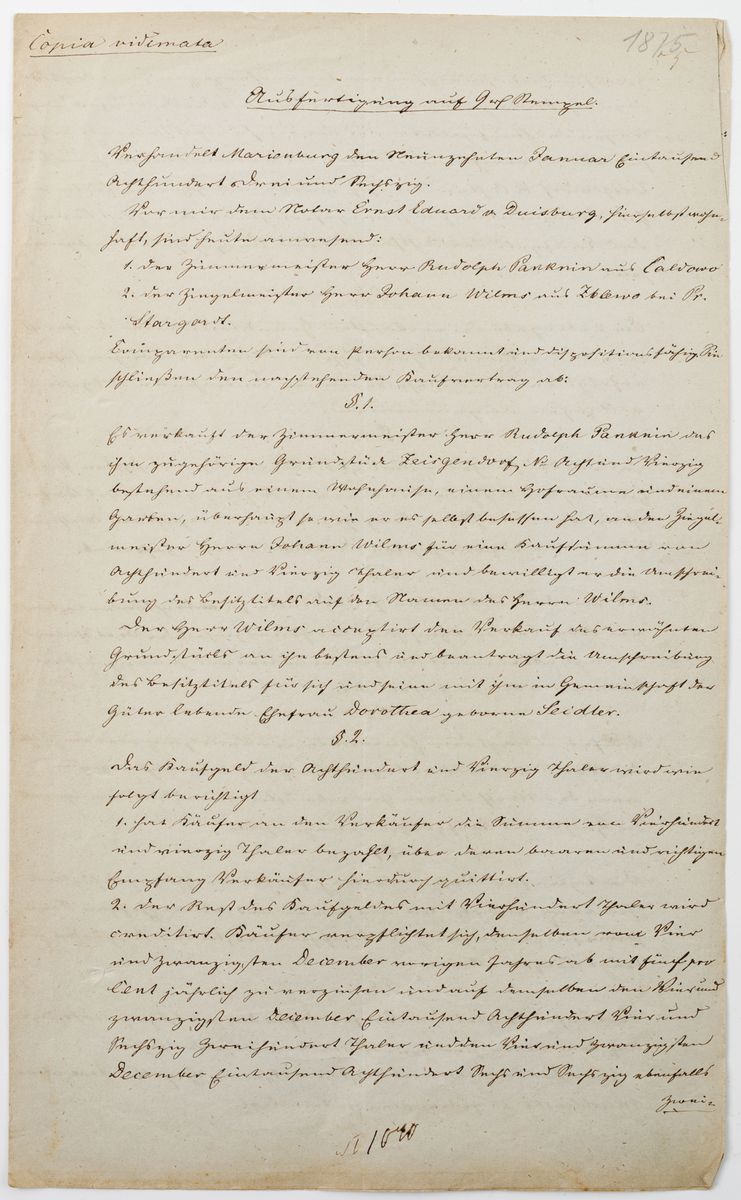 Copia vidimata
1875
Ausfertigung auf Stempel.
Verhandelt Marienburg den Neunzehnten Januar Eintausend
Achthundert Drei und Sechszig.
Vor mir dem Notar Ernst Eduard v Duisburg, hierselbst wohn-
haft, sind heute anwesend:
1. der Zimmermeister Herr Rudolph Panknin aus Caldowo
2. der Ziegelmeister Herr Johann Wilms aus Zblewo bei Pr.
Stargardt.
Comparenten sind von Person bekannt und dispositionsfähig. Sie
schließen den nachstehenden Kaufvertrag ab:
§. 1.
Es verkauft der Zimmermeister Herr Rudolph Panknin das
ihm zugehörige Grundstück Zeisgendorf No Acht und Vierzig
bestehend aus einem Wohnhause, einem Hofraume und einem
Garten, überhaupt so wie er es selbst besessen hat, an den Ziegel-
meister Herrn Johann Wilms für eine Kaufsumme von
Achthundert und Vierzig Thaler und bewilligt er die Umschrei-
bung des Besitztitels auf den Namen des Herrn Wilms.
Der Herr Wilms acceptirt den Verkauf des erwähnten
Grundstücks an ihn bestens und beantragt die Umschreibung
des Besitztitels für sich und seine mit ihm in Gemeinschaft der
Güter lebende Ehefrau Dorothea geborne Seidler.
§. 2.
Das Kaufgeld der Achthundert und Vierzig Thaler wird wie
folgt berichtigt
1. hat Käufer an den Verkäufer die Summe von Vierhundert
und vierzig Thaler bezahlt, über deren baaren und richtigen
Empfang Verkäufer hierdurch quittirt.
2. der Rest des Kaufgeldes mit Vierhundert Thaler wird
creditirt. Käufer verpflichtet sich, denselben vom Vier
und zwanzigsten December vorigen Jahres ab mit fünf pro
Cent jährlich zu verzinsen und auf demselben den Vier und
zwanzigsten December Eintausend Achthundert Vier und
Sechszig Zweihundert Thaler und den Vier und zwanzigsten
December Eintausend Achthundert Sechs und Sechszig ebenfalls
zwei-